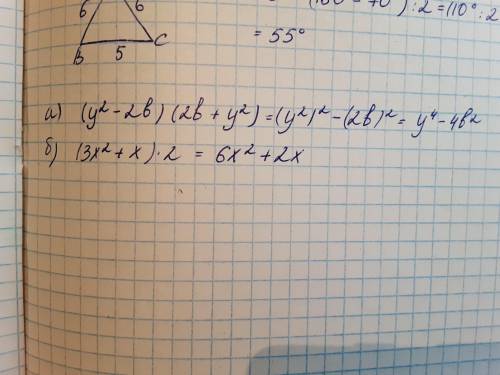 6 6
(180° - 70°) : 2 = (110° : 2
B 5 C
= 55°
а) (y² - 2b)(2b + y²) = (y²)² - (2b)² = y⁴ - 4b²
б) (3x² + x) · 2 = 6x² + 2x